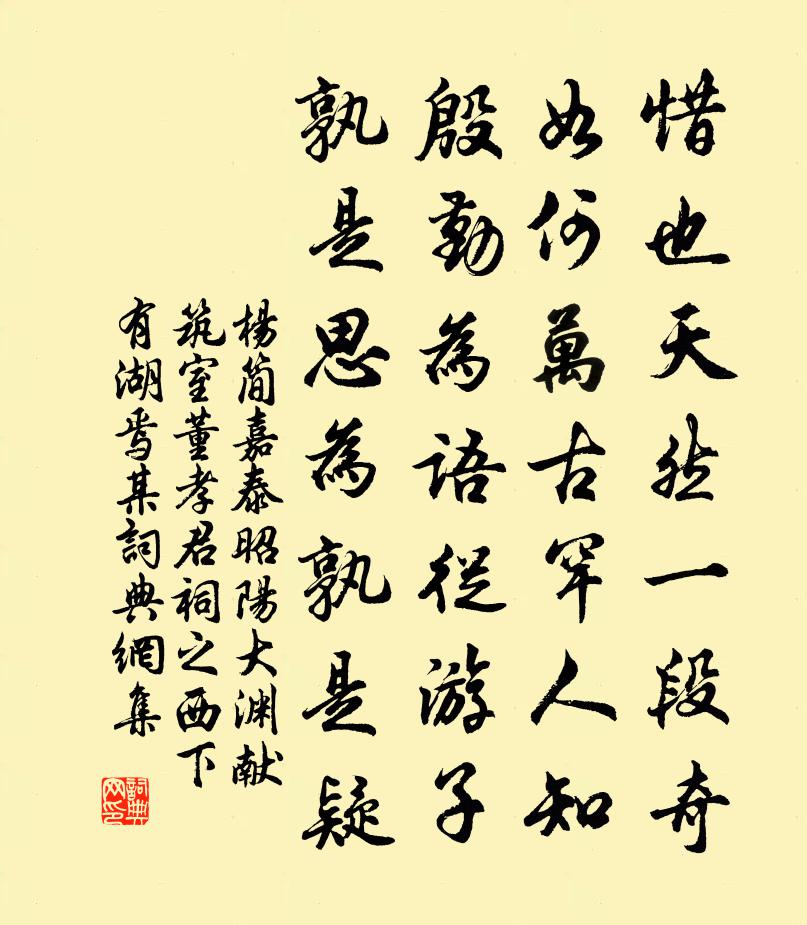 惜也天然一段奇
如何萬古罕人知
殷勤為語從游子
孰是思為孰是疑
楊簡嘉泰昭陽大渊献
筑室董孝君祠之西下
有湖焉某詞典網集
詞典网印